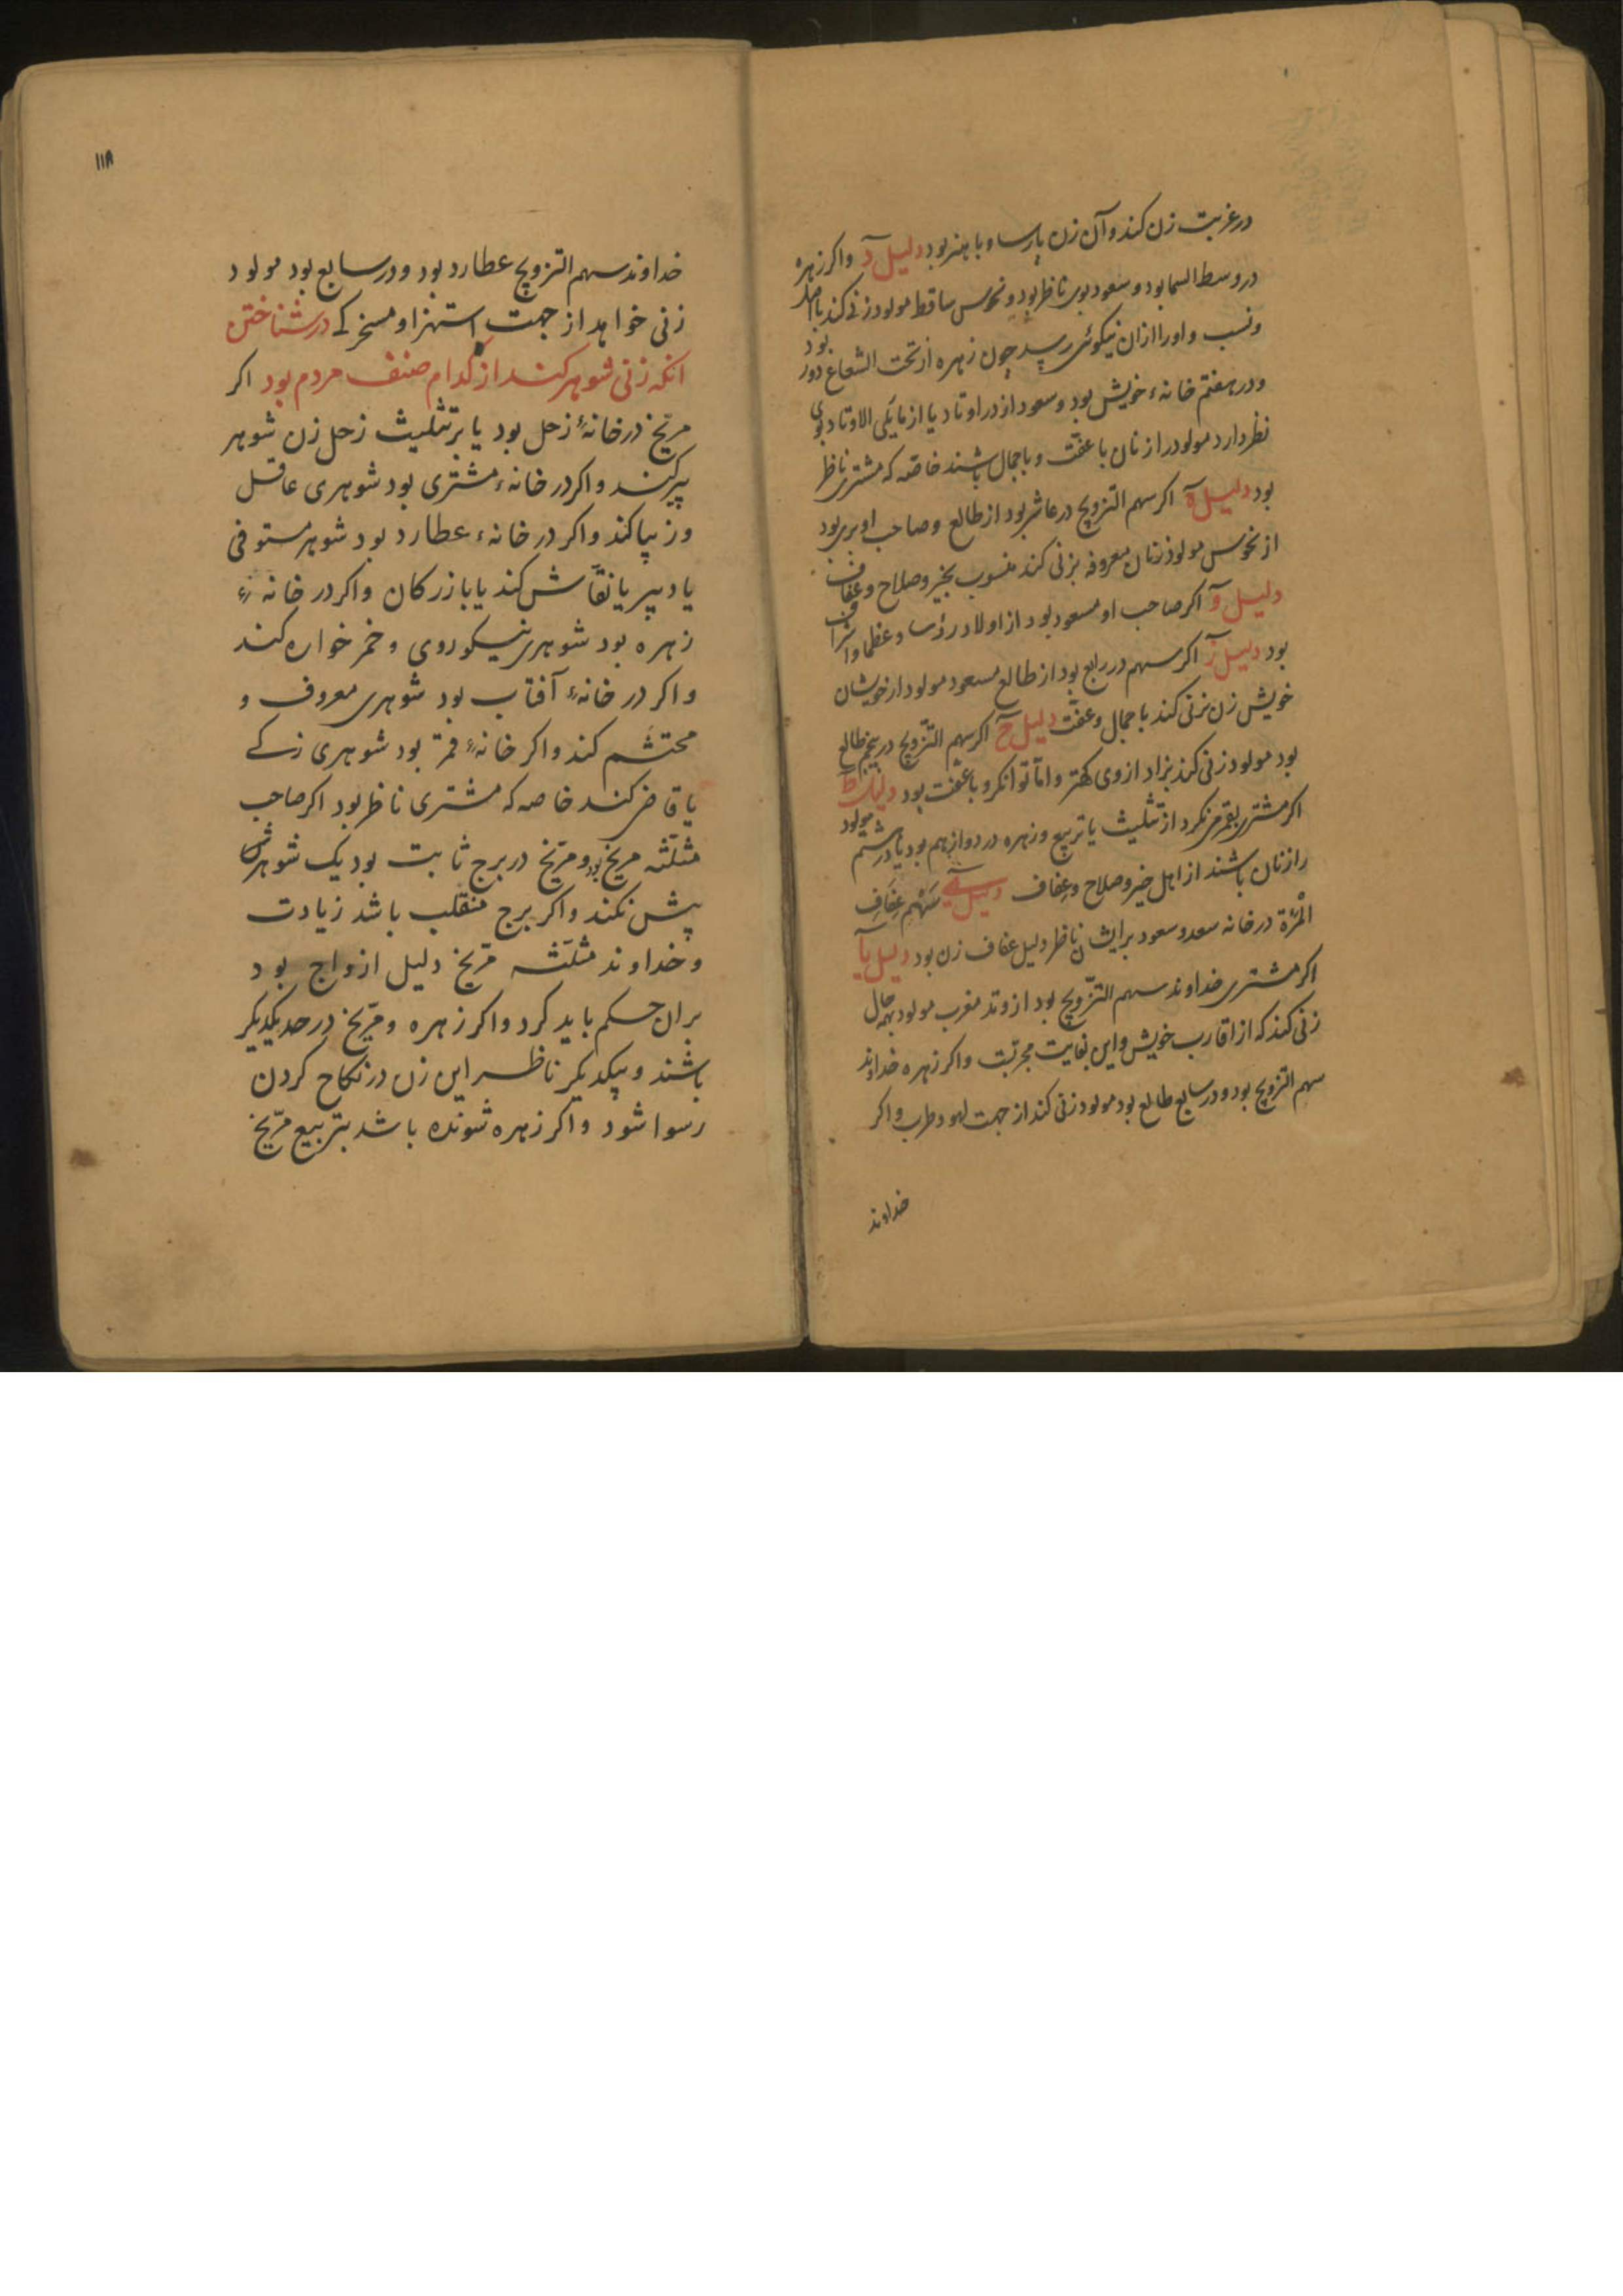 در غربت زن کند و آن زن پارسا و با هنر بود دلیل د و اکر زهره
در وسط السما بود و سعود بوی ناظر بود و نحوس ساقط مولود زنی کند با اصل
و نسب و او را ازان نیکوئی رسد چون زهره از تحت الشعاع دور بود
و در هفتم خانهٔ خویش بود و سعود از در اوتاد یا از مایلی الاوتاد بوی
نظر دارد مولود را زنان با عفّت و با جمال باشند خاصّه که مشتری ناظر
بود دلیل ه اکر سهم التزویج در عاشر بود از طالع و صاحب او بری بود
از نحوس مولود زنان معروفه بزنی کند منسوب بخیر و صلاح و عفاف
دلیل و اکر صاحب او مسعود بود از اولاد رؤسا و عظما و اشراف
بود دلیل ز اکر سهم در رابع بود از طالع مسعود مولود از خویشان
خویش زن بزنی کند با جمال و عفّت دلیل ح اکر سهم التزویج در پنجم طالع
بود مولود زنی کند بزاد از وی کهتر و امّا توانکر و با عفّت بود دلیل ط
اکر مشتری بقمر نکرد از تثلیث یا تربیع و زهره در دوازدهم بود یا در ششم مولود
را زنان باشند از اهل خیر و صلاح و عفاف دلیل ی سهم عفاف
المرٔة در خانه سعد و سعود برایشان ناظر دلیل عفاف زن بود دلیل یا
اکر مشتری خداوند سهم التزّویج بود از وتد مغرب مولود بهمه حال
زنی کند که از اقارب خویش و این بغایت مجرّبست و اکر زهره خداوند
سهم التزویج بود و در سابع طالع بود مولود زنی کند از جهت لهو و طرب و اکر
خداوند
۱۱۸
خداوند سهم التزویج عطارد بود و در سابع بود مولود
زنی خواهد از جهت استهزا و مسخرکی در شناختن
انکه زنی شوهر کند از کدام صنف مردم بود اکر
مرّیخ در خانهٔ زحل بود یا بر تثلیث زحل زن شوهر
پیر کند و اکر در خانهٔ مشتری بود شوهری عاقل
و زیبا کند و اکر در خانهٔ عطارد بود شوهر مستوفی
یا دبیر یا نقّاش کند یا بازرکان و اکر در خانهٔ
زهره بود شوهری نیکو روی و خمر خواره کند
و اکر در خانهٔ آفتاب بود شوهری معروف و
محتشم کند و اکر خانهٔ قمر بود شوهری زکی
یا قاضی کند خاصه که مشتری ناظر بود اکر صاحب
مثلّثه مریخ بود و مرّیخ در برج ثابت بود یک شوهر
بیش نکند و اکر برج منقلب باشد زیادت
و خداوند مثلّثه مرّیخ دلیل ازواج بود
بران حکم باید کرد و اکر زهره و مرّیخ در حد یکدیکر
باشند و بیکدیکر ناظر این زن در نکاح کردن
رسوا شود و اکر زهره شونده باشد بتربیع مرّیخ